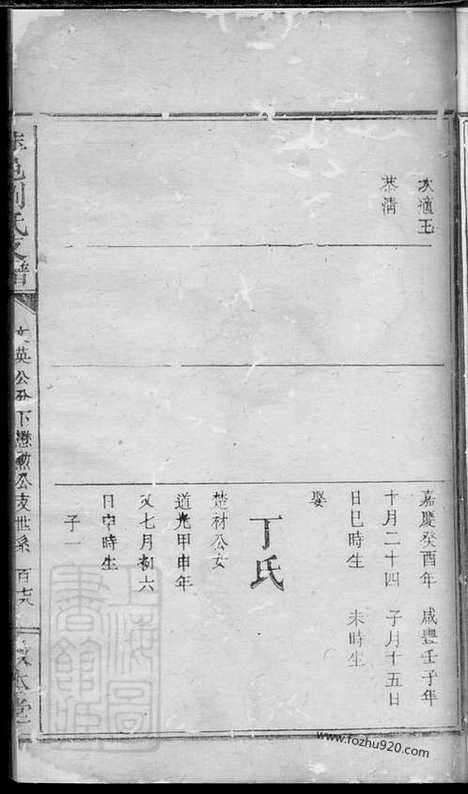 次適王
恭清
嘉慶癸酉年
十月二十四
日巳時生
娶
丁氏
楚材公女
道光甲申年
又七月初六
日申時生
子一
咸豐壬子年
子月十五日
未時生
劉氏支譜
英公
下懋勲公支世系
上海圖
書館藏
www.fozhu920.com